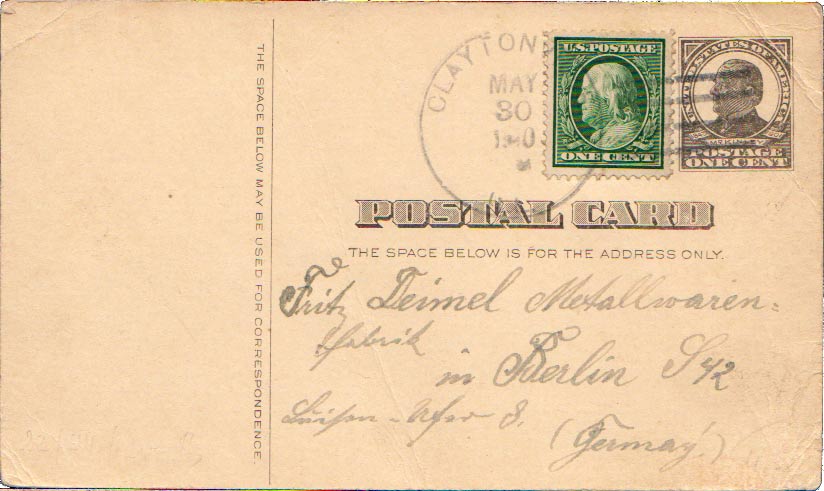 CLAYTON
MAY
30
U.S. POSTAGE
ONE CENT
UNITED STATES OF AMERICA
McKINLEY
POSTAGE
ONE CENT
POSTAL CARD
THE SPACE BELOW IS FOR THE ADDRESS ONLY.
THE SPACE BELOW MAY BE USED FOR CORRESPONDENCE.
Fritz Deimel Metallwaren-
fabrik
in Berlin S 42
Luisen-Ufer 8.
(Germay)